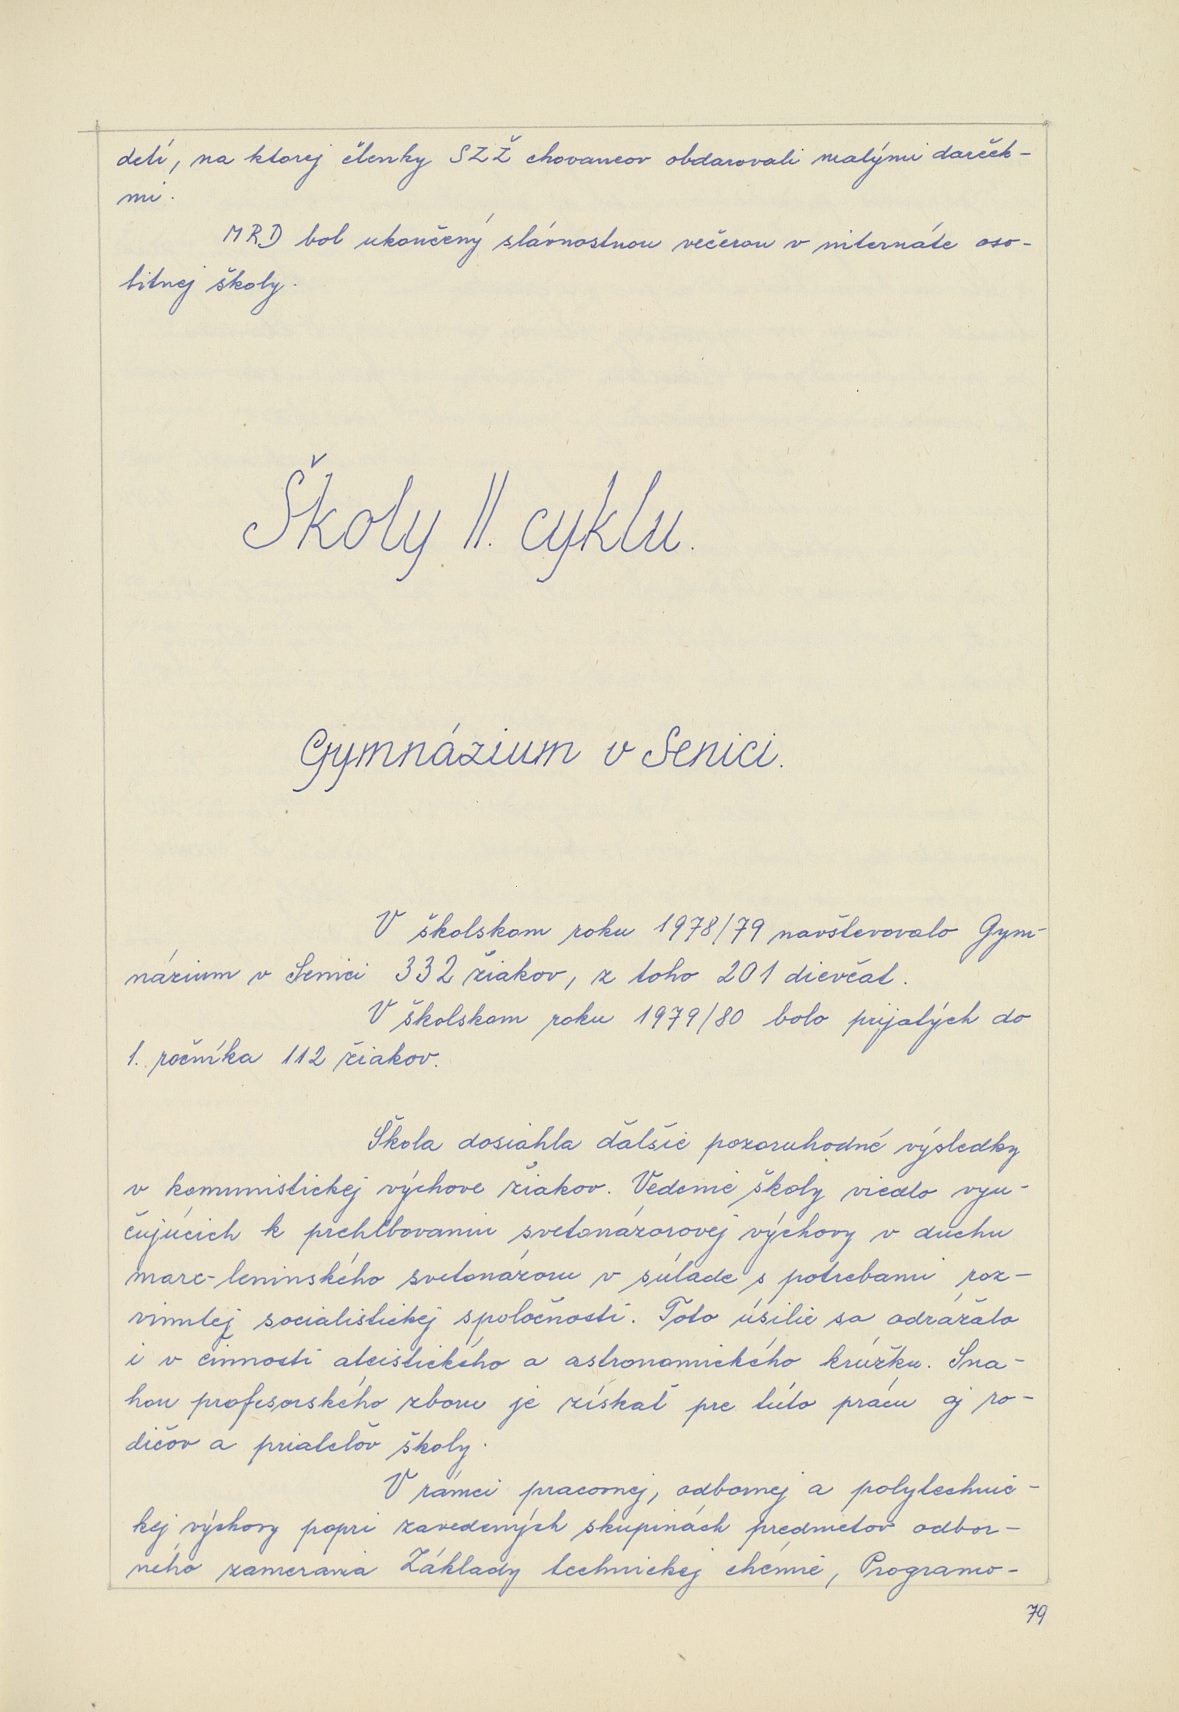 detí, na ktorej členky SZŽ chovancov obdarovali malými darček-
mi.
MRD bol ukončený slávnostnou večerou v internáte oso-
bitnej školy.
Školy II. cyklu.
Gymnázium v Senici.
V školskom roku 1978/79 navštevovalo Gym-
názium v Senici 332 žiakov, z toho 201 dievčat.
V školskom roku 1979/80 bolo prijatých do
1. ročníka 112 žiakov.
Škola dosiahla ďalšie pozoruhodné výsledky
v komunistickej výchove žiakov. Vedenie školy viedlo vyu-
čujúcich k prehlbovaniu svetonázorovej výchovy v duchu
marx-leninského svetonázoru v súlade s potrebami roz-
vinutej socialistickej spoločnosti. Toto úsilie sa odrážalo
i v činnosti ateistického a astronomického krúžku. Sna-
hou profesorského zboru je získať pre túto prácu aj ro-
dičov a priateľov školy.
V rámci pracovnej, odbornej a polytechnic-
kej výchovy popri zavedených skupinách predmetov odbor-
ného zamerania Základy technickej chémie, Programo-
79